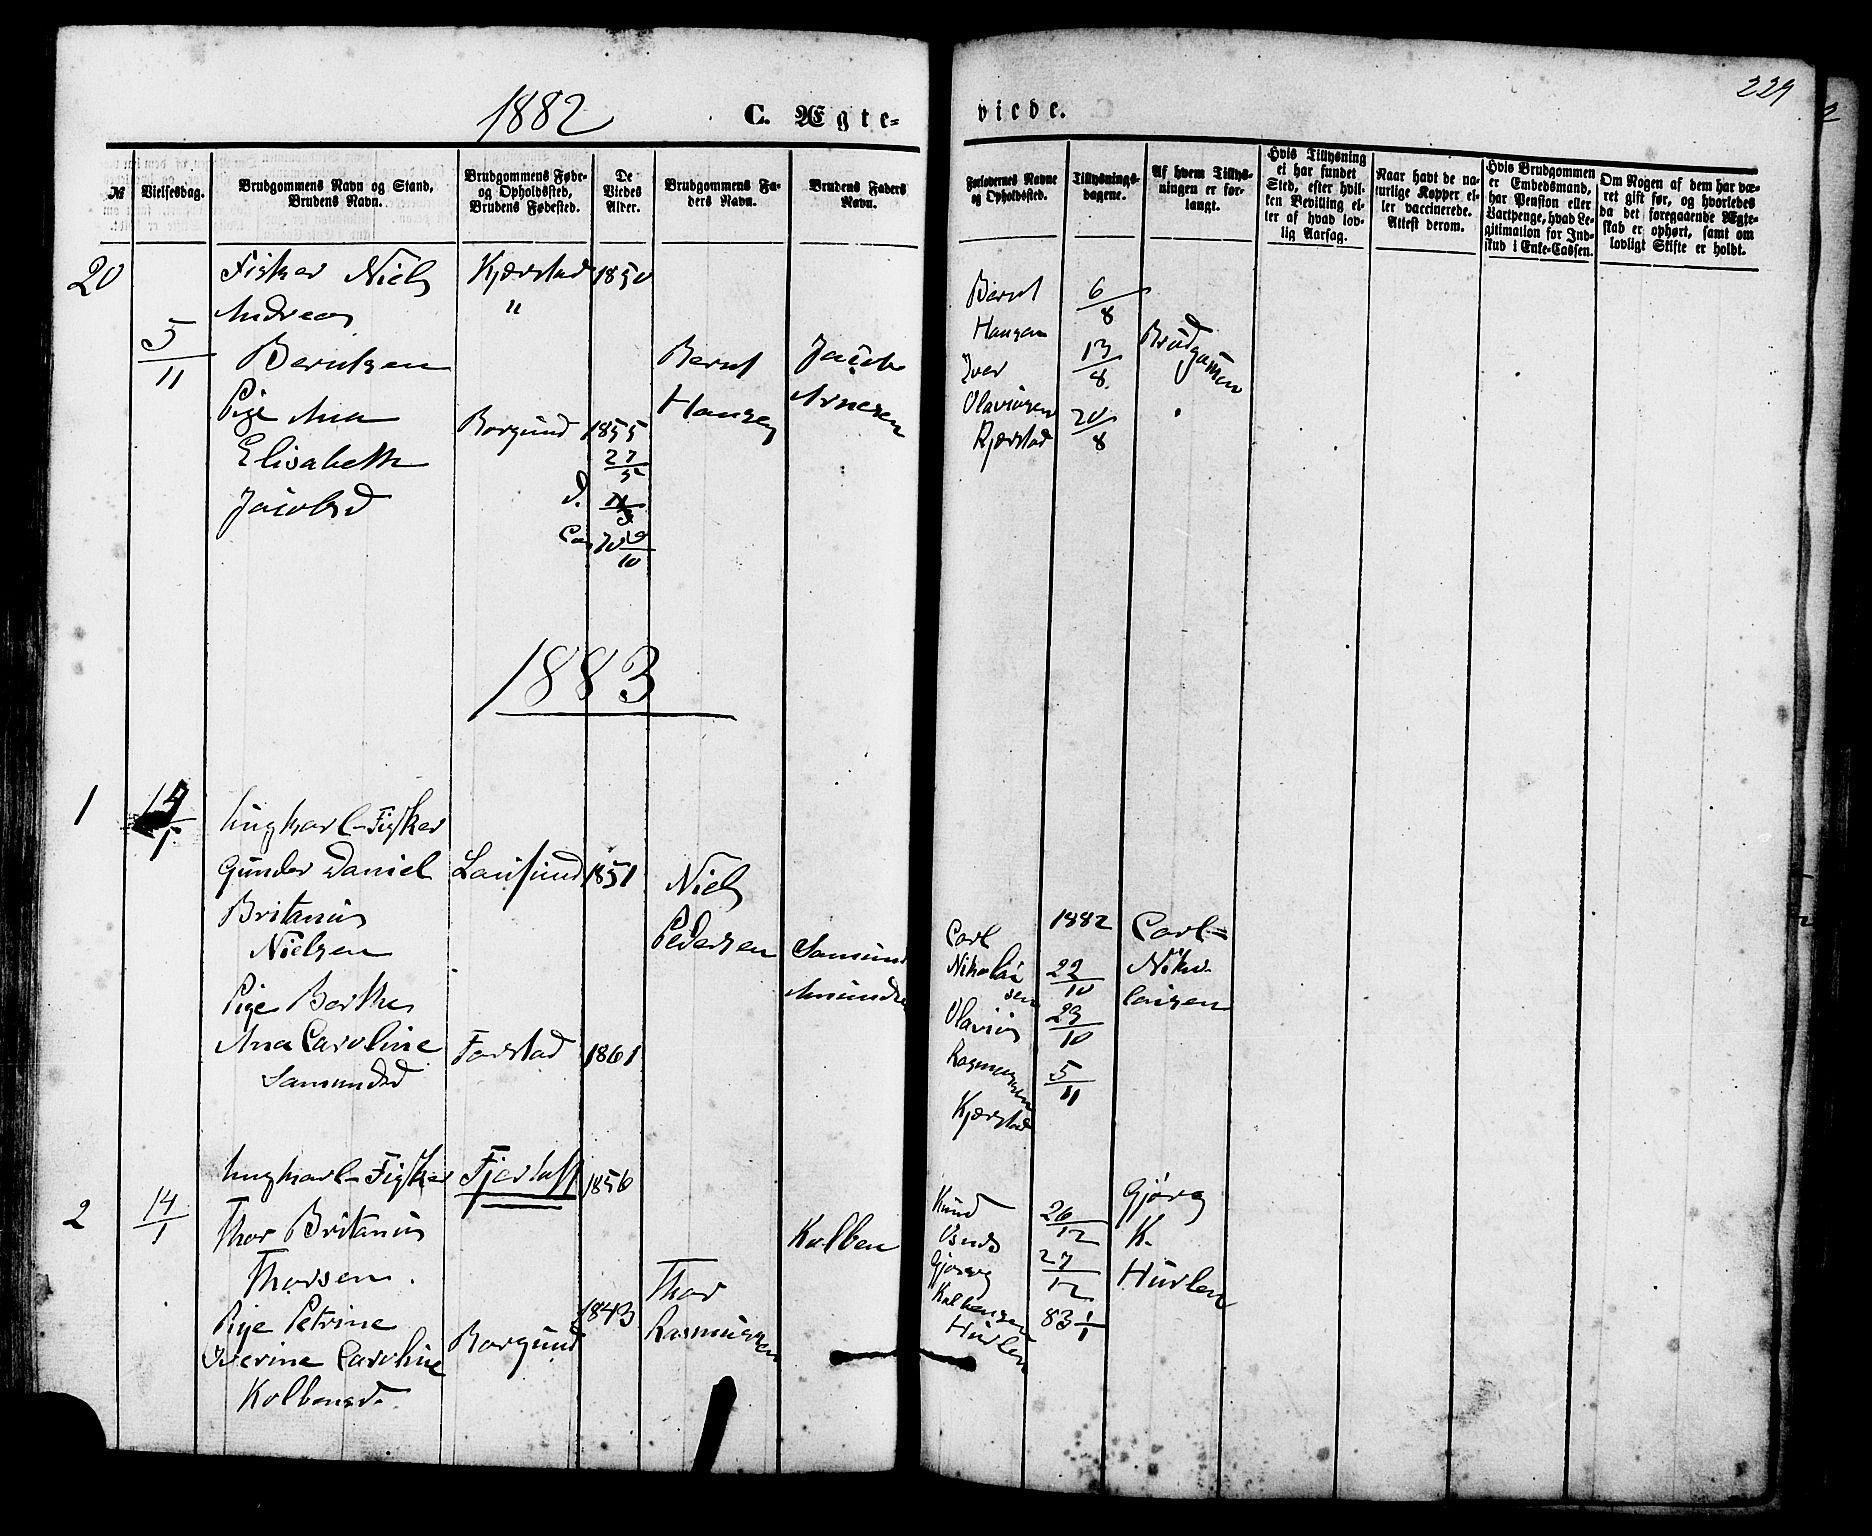 1882
C. Ægte-
viede.
229
№
Vielsesdag.
Brudgommens Navn og Stand,
Brudens Navn.
Brudgommens Føde-
og Opholdssted,
Brudens Fødested.
De
Viedes
Alder.
Brudgommens Fa-
ders Navn.
Brudens Faders
Navn.
Forlovernes Navne
og Opholdssted.
Tillysnings-
dagene.
Af hvem Tillys-
ningen er for-
langt.
Hvis Tillysning
ei har fundet
Sted, efter hvil-
ken Bevilling el-
ler af hvad lov-
lig Aarsag.
Naar havt de na-
turlige Kopper el-
ler vaccinerede.
Attest derom.
Hvis Brudgommen
er Embedsmand,
har Pension eller
Vartpenge, hvad Le-
gitimation for Ind-
skud i Enke-Cassen.
Om Nogen af dem har væ-
ret gift før, og hvorledes
da det foregaaende Ægte-
skab er ophørt, samt om
lovligt Skifte er holdt.
20
5/11
Fisker Niels
Andreas
Berntsen
Pige Ana
Elisabeth
Jacobsd
Kjærstad
"
Borgund
1850
1855
27/5
d.
10/10
Bernt
Hansen
Jacob
Arnesen
Bernt
Hansen
Iver
Olaviusen
Kjærstad
6/8
13/8
20/8
Brudgommen
1883
1
Ungkarl-Fisker
Gunder Daniel
Britanius
Nielsen
Pige Berthe
Ana Caroline
Samundsd
Laufsund
Farstad
1851
1861
Niels
Pedersen
Samund
Amunds
Carl
Nikolai
sen
Olavius
Rasmussen
Kjærstad
1882
22/10
29/10
5/11
Carl-
Niko-
laisen
2
14/1
Ungkarl-Fisker
Thor Britanius
Thorsen.
Pige Petrine
Iverine Caroline
Kolbensd.
Fjørtoft
Borgund
1856
1843
Thor
Rasmussen
Kolben
Knud
Gjørg
Kolbensen
Hurlen
26/12
27/12
83 1/1
Gjørg
K.
Hurlen